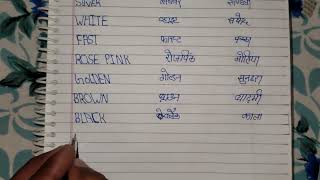 SILVER सिल्वर
WHITE व्हाइट सफेद
FAST फास्ट
ROSE PINK रोजपिंक मोतिया
GOLDEN गोल्डन सुनहरा
BROWN ब्राउन बादामी
BLNCK काला